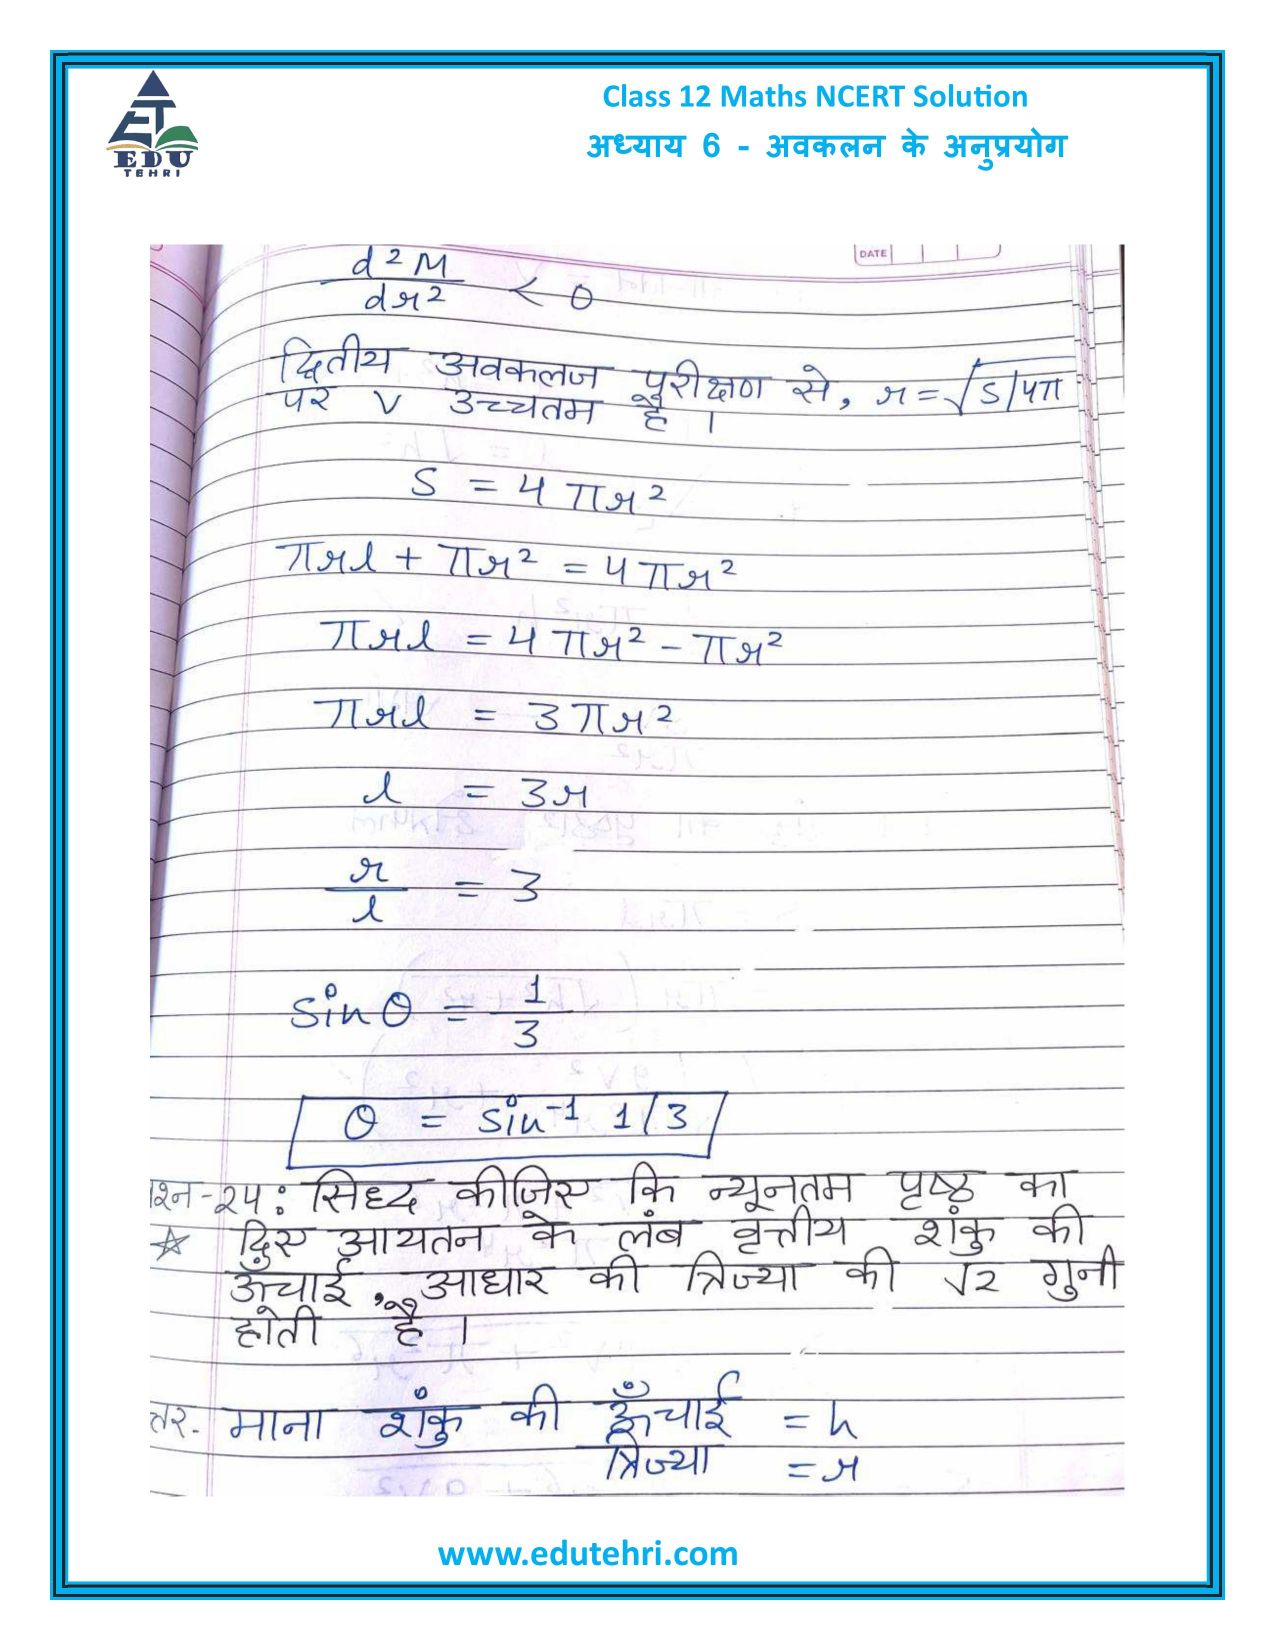 Class 12 Maths NCERT Solution
अध्याय 6 - अवकलन के अनुप्रयोग
EDU
TEHRI
DATE
d²M
dr² < 0
द्वितीय अवकलज परीक्षण से, r = √S/4π
पर V उच्चतम है ।
S = 4πr²
πrl + πr² = 4πr²
πrl = 4πr² - πr²
πrl = 3πr²
l = 3r
r/l = 3
sinθ = 1/3
θ = sin⁻¹ 1/3
श्न-24: सिध्द कीजिए कि न्यूनतम पृष्ठ का
दिए आयतन के लंब वृत्तीय शंकु की
ऊँचाई, आधार की त्रिज्या की √2 गुनी
होती है ।
त्तर. माना शंकु की ऊँचाई = h
त्रिज्या = r
www.edutehri.com